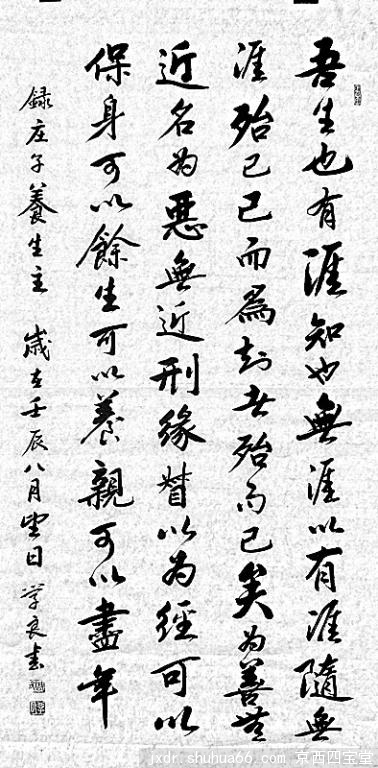 吾生也有涯知也無涯以有涯隨無
涯殆已已而爲知者殆而已矣为善無
近名为惡無近刑緣督以为經可以
保身可以餘生可以養親可以盡年
録庄子養生主 歲在壬辰八月望日 学良书
京西四宝堂